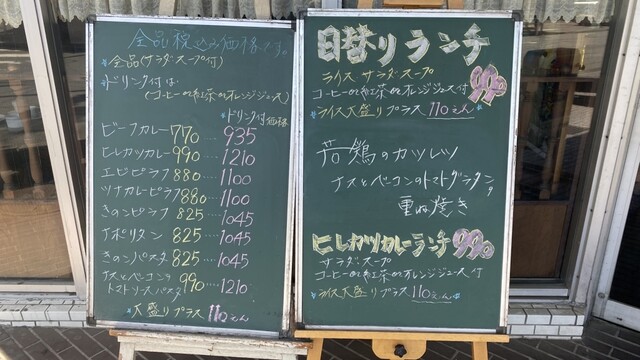 全品税込み価格です。
*全品(サラダ・スープ付)
*ドリンク付は
(コーヒーor紅茶orオレンジジュース)
*ドリンク付価格
ビーフカレー 770 … 935
ヒレカツカレー 990 … 1210
エビピラフ 880 … 1100
ツナカレーピラフ 880 … 1100
きのこピラフ 825 … 1045
ナポリタン 825 … 1045
きのこパスタ 825 … 1045
ナスとベーコンの
トマトソースパスタ 990 … 1210
大盛りプラス 110えん
日替りランチ
ライス サラダ スープ
コーヒーor紅茶orオレンジジュース付 990
*ライス大盛りプラス 110えん
若鶏のカツレツ
ナスとベーコンのトマトグラタン
重ね焼き
ヒレカツカレーランチ 990
サラダ・スープ
コーヒーor紅茶orオレンジジュース付
*ライス大盛りプラス 110えん*